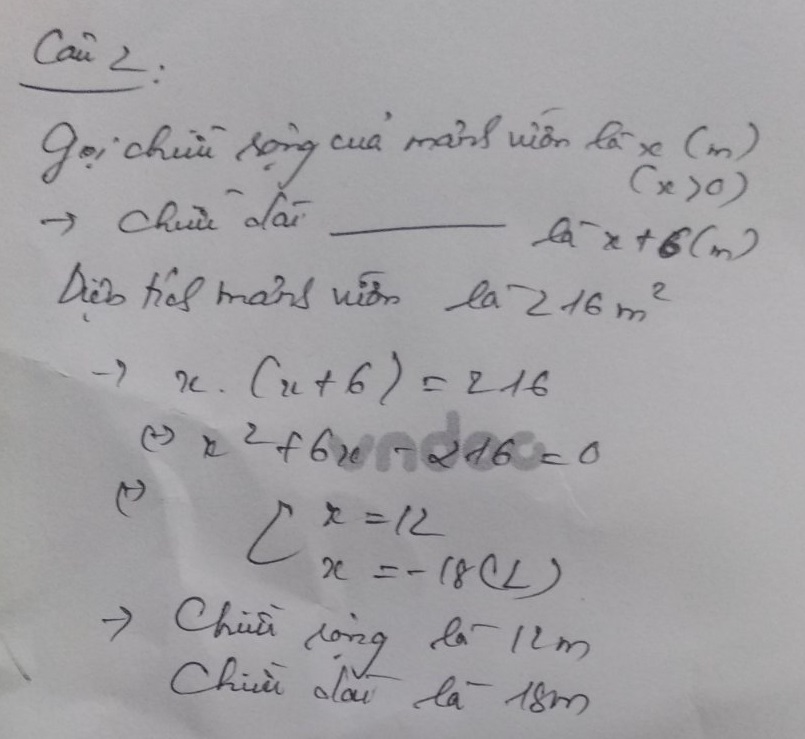 Câu 2:
Gọi chiều rộng của mảnh vườn là x (m)
(x>0)
→ Chiều dài ——— là x+6(m)
Diện tích mảnh vườn là 216 m²
→ x. (x+6) = 216
(↔) x² + 6x - 216 = 0
vndoc
(↔) [ x = 12
x = -18 (L)
→ Chiều rộng là 12m
Chiều dài là 18m